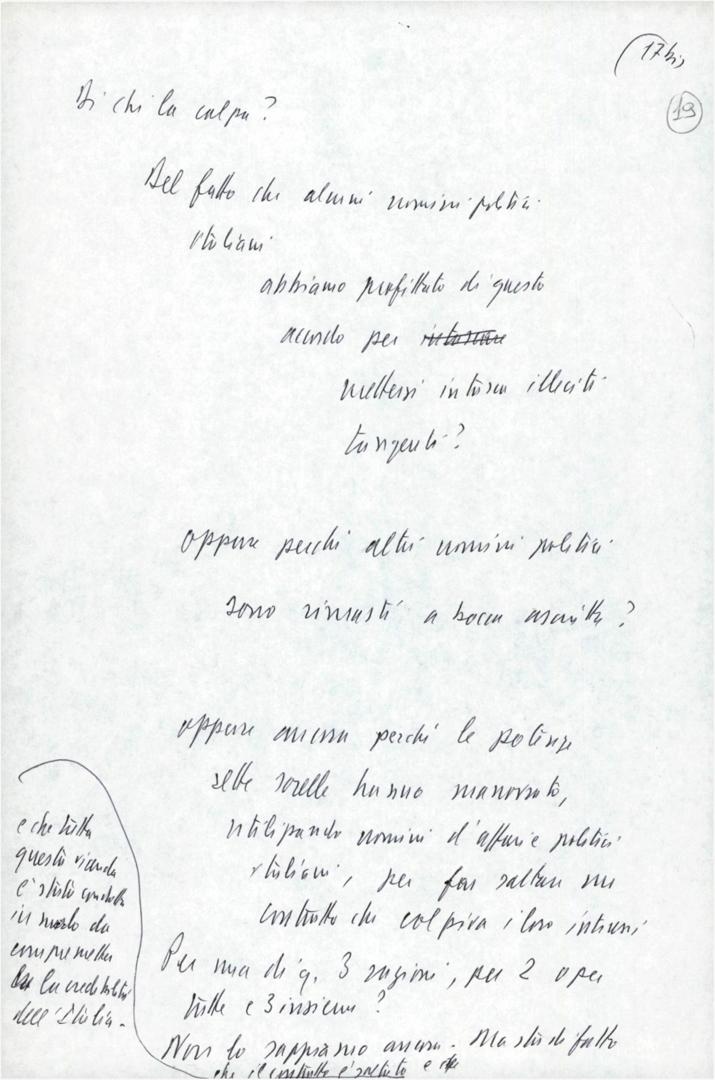 (17 bis
19
Di chi la colpa?
Del fatto che alcuni uomini politici
italiani
abbiamo profittato di questo
accordo per intascare
mettersi in tasca illeciti
tangenti?
oppure perchi altri uomini politici
sono rimasti a bocca asciutta?
oppure ancora perchi le potenze
sette sorelle hanno manovrato,
utilizzando uomini d'affari e politici
italiani, per far saltare un
contratto che colpiva i loro interessi
Per una di q. 3 ragioni, per 2 o per
tutte e 3 insieme?
Non lo sappiamo ancora. Ma sta di fatto
che il contratto è saltato e che
e che tutta
questa vicenda
è stata condotta
in modo da
compromette
re la credibilità
dell'Italia.